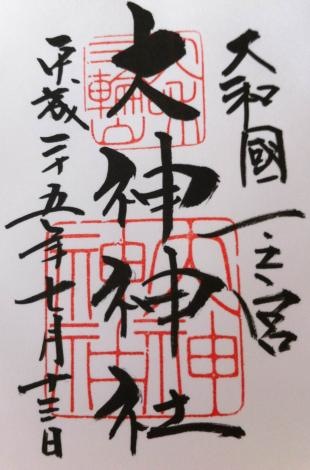 大和國一之宮
大神神社
平成二十五年七月十三日
三輪山
大神神社